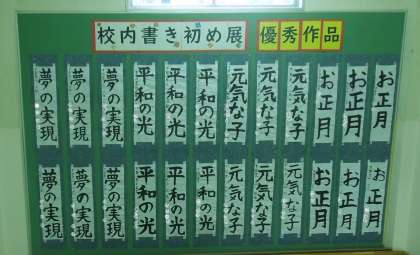 校内書き初め展
優秀作品
お正月
お正月
お正月
元気な子
元気な子
元気な子
平和の光
平和の光
平和の光
夢の実現
夢の実現
夢の実現
お正月
お正月
お正月
元気な子
元気な子
元気な子
平和の光
平和の光
平和の光
夢の実現
夢の実現
夢の実現